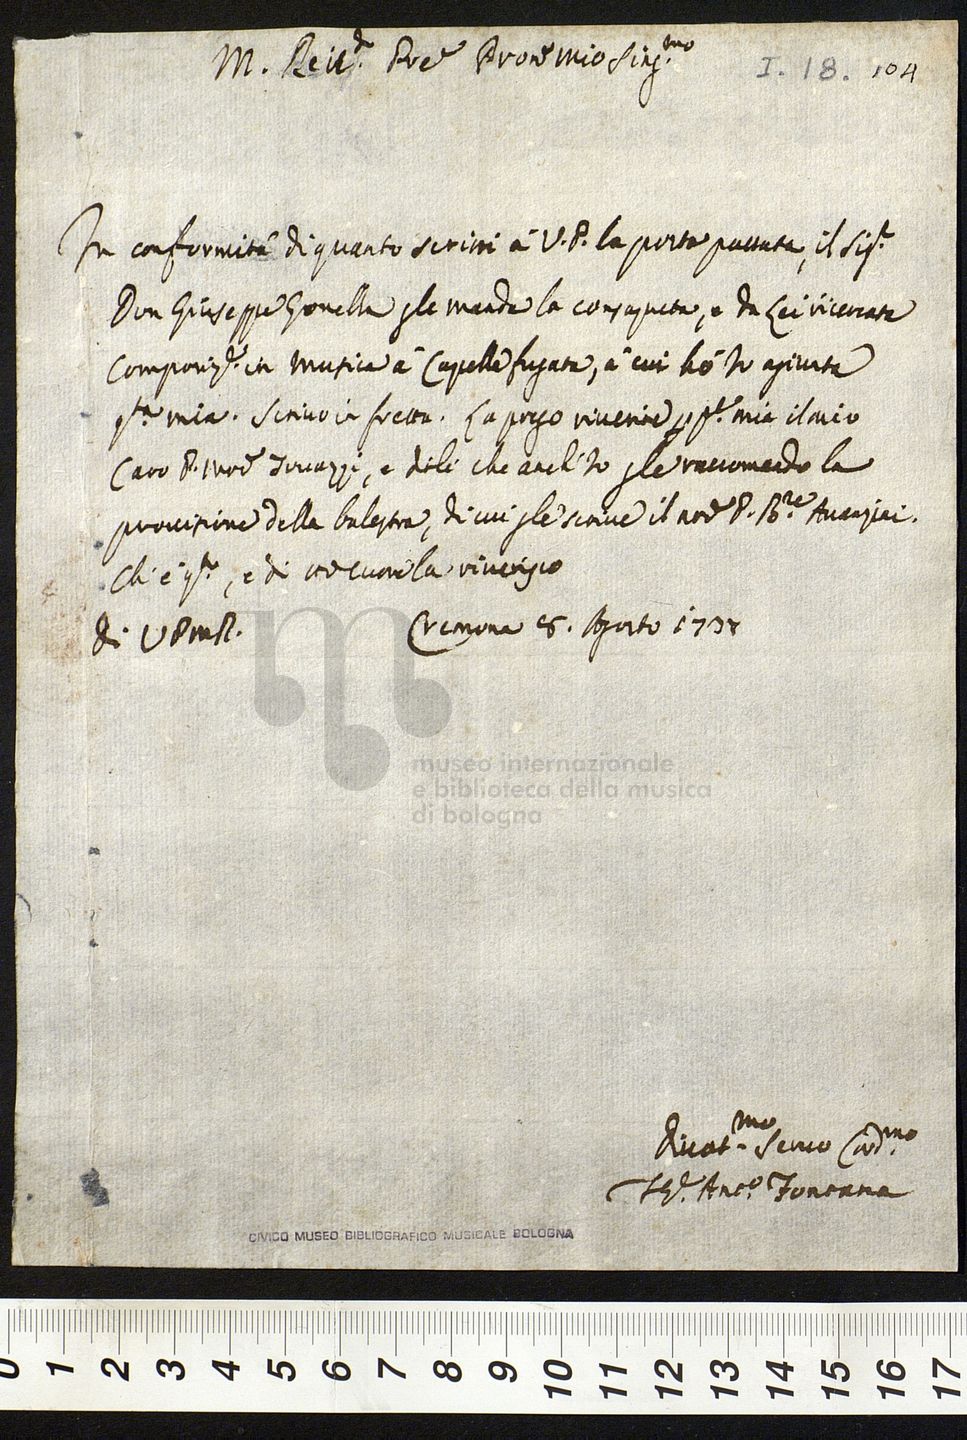 M. Rev.do Pre Prone mio Sing.mo
I. 18. 104
In conformità di quanto scrissi à V.P. la posta passata, il Sig.r
Don Giuseppe Gonella gle manda la consaputa, e da Lei ricercata
Composiz.e in musica à Capella fugata, à cui hò Io agiunta
q.ta mia. Scrivo in fretta. La prego riverire p p.te mia il mio
Caro P. Mro e dirli che anch'Io gle raccomando la
provisione della balestra, di cui gle scrive il nro P. B.re
Chi è q.to, e di vero cuore la riverisco
di V P M R.
Cremona 8. Agosto 173
museo internazionale
e biblioteca della musica
di bologna
Divot.mo Servo Obd.mo
Ant.o Fontana
CIVICO MUSEO BIBLIOGRAFICO MUSICALE BOLOGNA
0 1 2 3 4 5 6 7 8 9 10 11 12 13 14 15 16 17